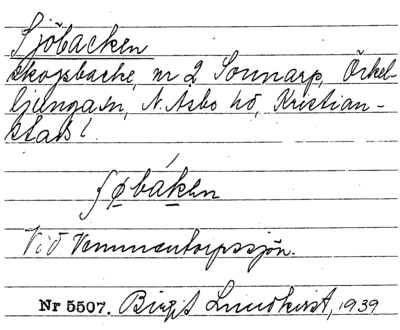 Sjöbacken
skogsbacke, nr 2 Sonnarp, Örkel-
ljunga sn, N. Åsbo hd, Kristian-
stads l.
ʃø̱bák̲en
Vid Vemmentorpssjön.
Nr 5507. Birgit Lundkvist, 1939